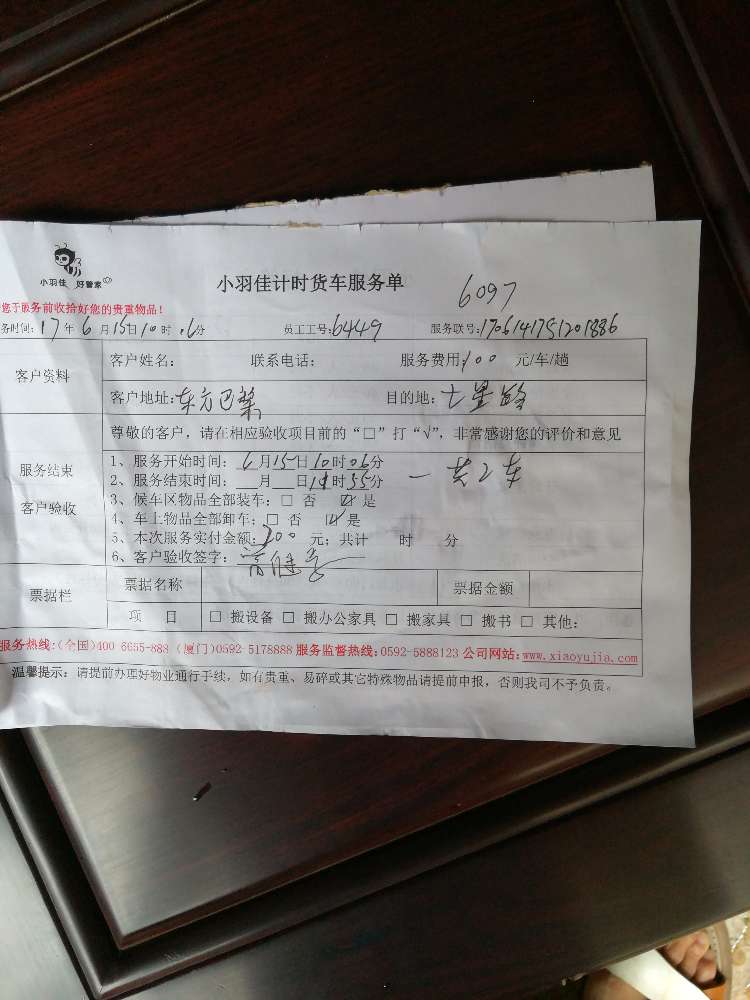 小羽佳 好管家
小羽佳计时货车服务单
6097
您于服务前收拾好您的贵重物品！
务时间：17年6月15日10时06分 员工工号：6449 服务联号：1706141751201886
客户资料
客户姓名： 联系电话： 服务费用：100 元/车/趟
客户地址：东方巴黎 目的地：七星路
尊敬的客户，请在相应验收项目前的“□”打“√”，非常感谢您的评价和意见
服务结束
客户验收
1、服务开始时间：6月15日10时06分
2、服务结束时间： 月 日11时55分
一共2车
3、候车区物品全部装车：□ 否 ☑ 是
4、车上物品全部卸车：□ 否 ☑ 是
5、本次服务实付金额：200 元；共计 时 分
6、客户验收签字：
票据栏
票据名称 票据金额
项 目 □ 搬设备 □ 搬办公家具 □ 搬家具 □ 搬书 □ 其他：
服务热线：(全国)400 6655-888 (厦门)0592-5178888 服务监督热线：0592-5888123 公司网站：www.xiaoyujia.com
温馨提示：请提前办理好物业通行手续，如有贵重、易碎或其它特殊物品请提前申报，否则我司不予负责。